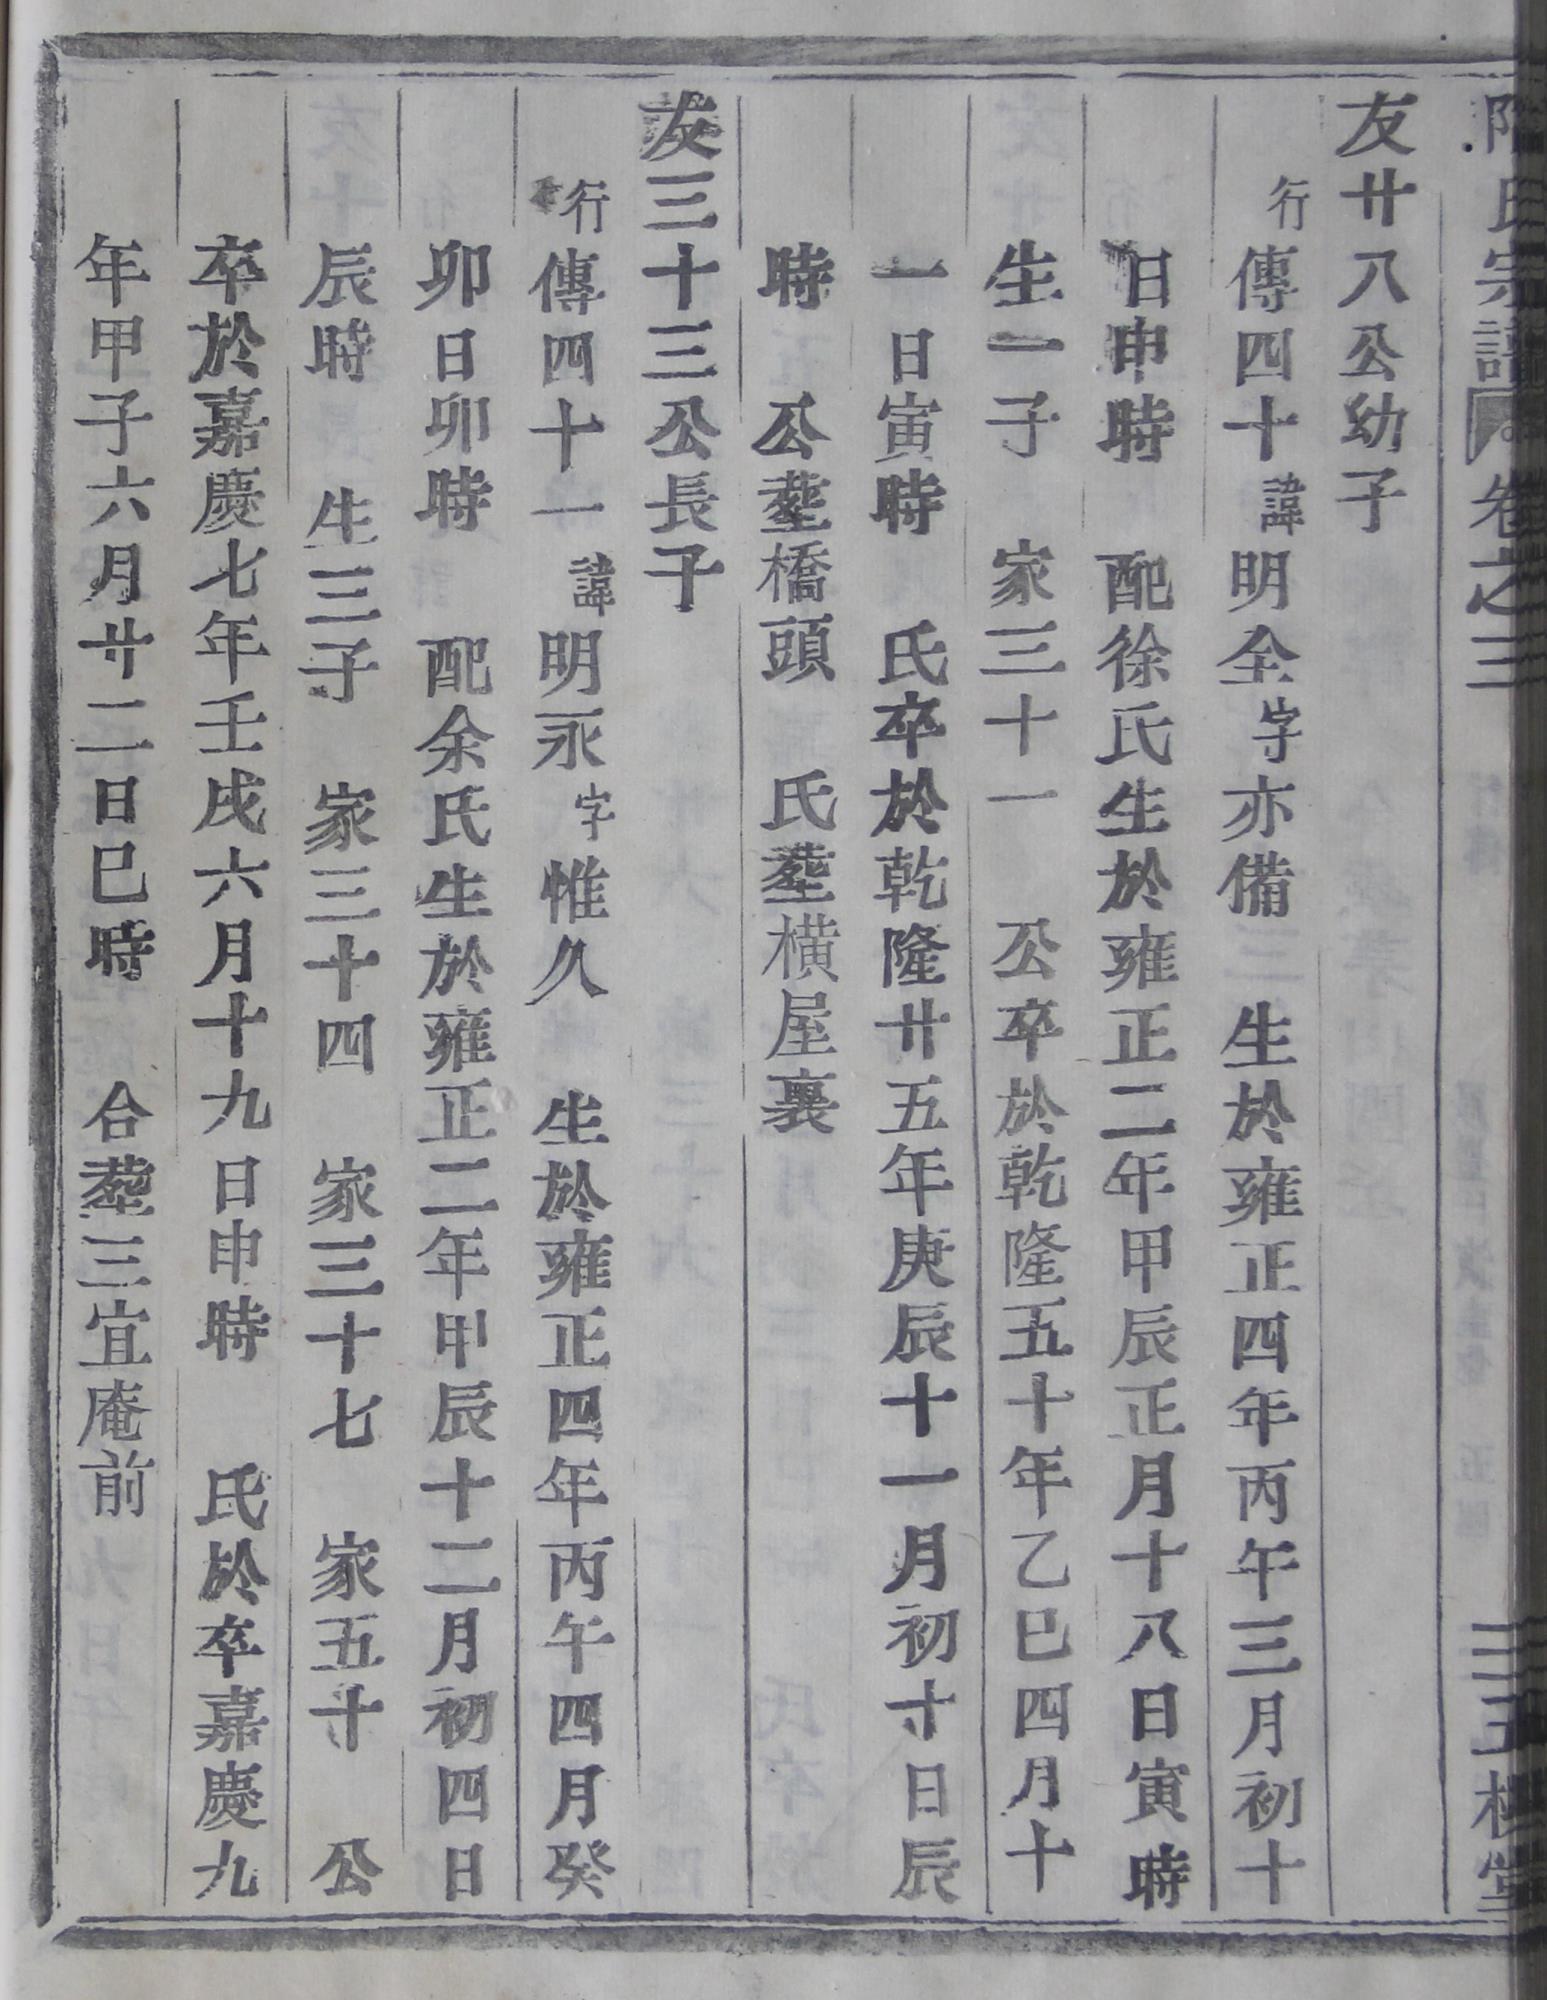 氏宗譜 卷之三 三五槐堂
友廿八公幼子
行傳四十諱明全字亦備 生於雍正四年丙午三月初十
日申時 配徐氏生於雍正二年甲辰正月十八日寅時
生一子 家三十一 公卒於乾隆五十年乙巳四月十
一日寅時 氏卒於乾隆廿五年庚辰十一月初寸日辰
時 公塟橋頭 氏塟橫屋裏
友三十三公長子
行傳四十一諱明永字惟久 生於雍正四年丙午四月癸
卯日卯時 配余氏生於雍正二年甲辰十二月初四日
辰時 生三子 家三十四 家三十七 家五十 公
卒於嘉慶七年壬戌六月十九日申時 氏於卒嘉慶九
年甲子六月廿二日巳時 合塟三宜庵前